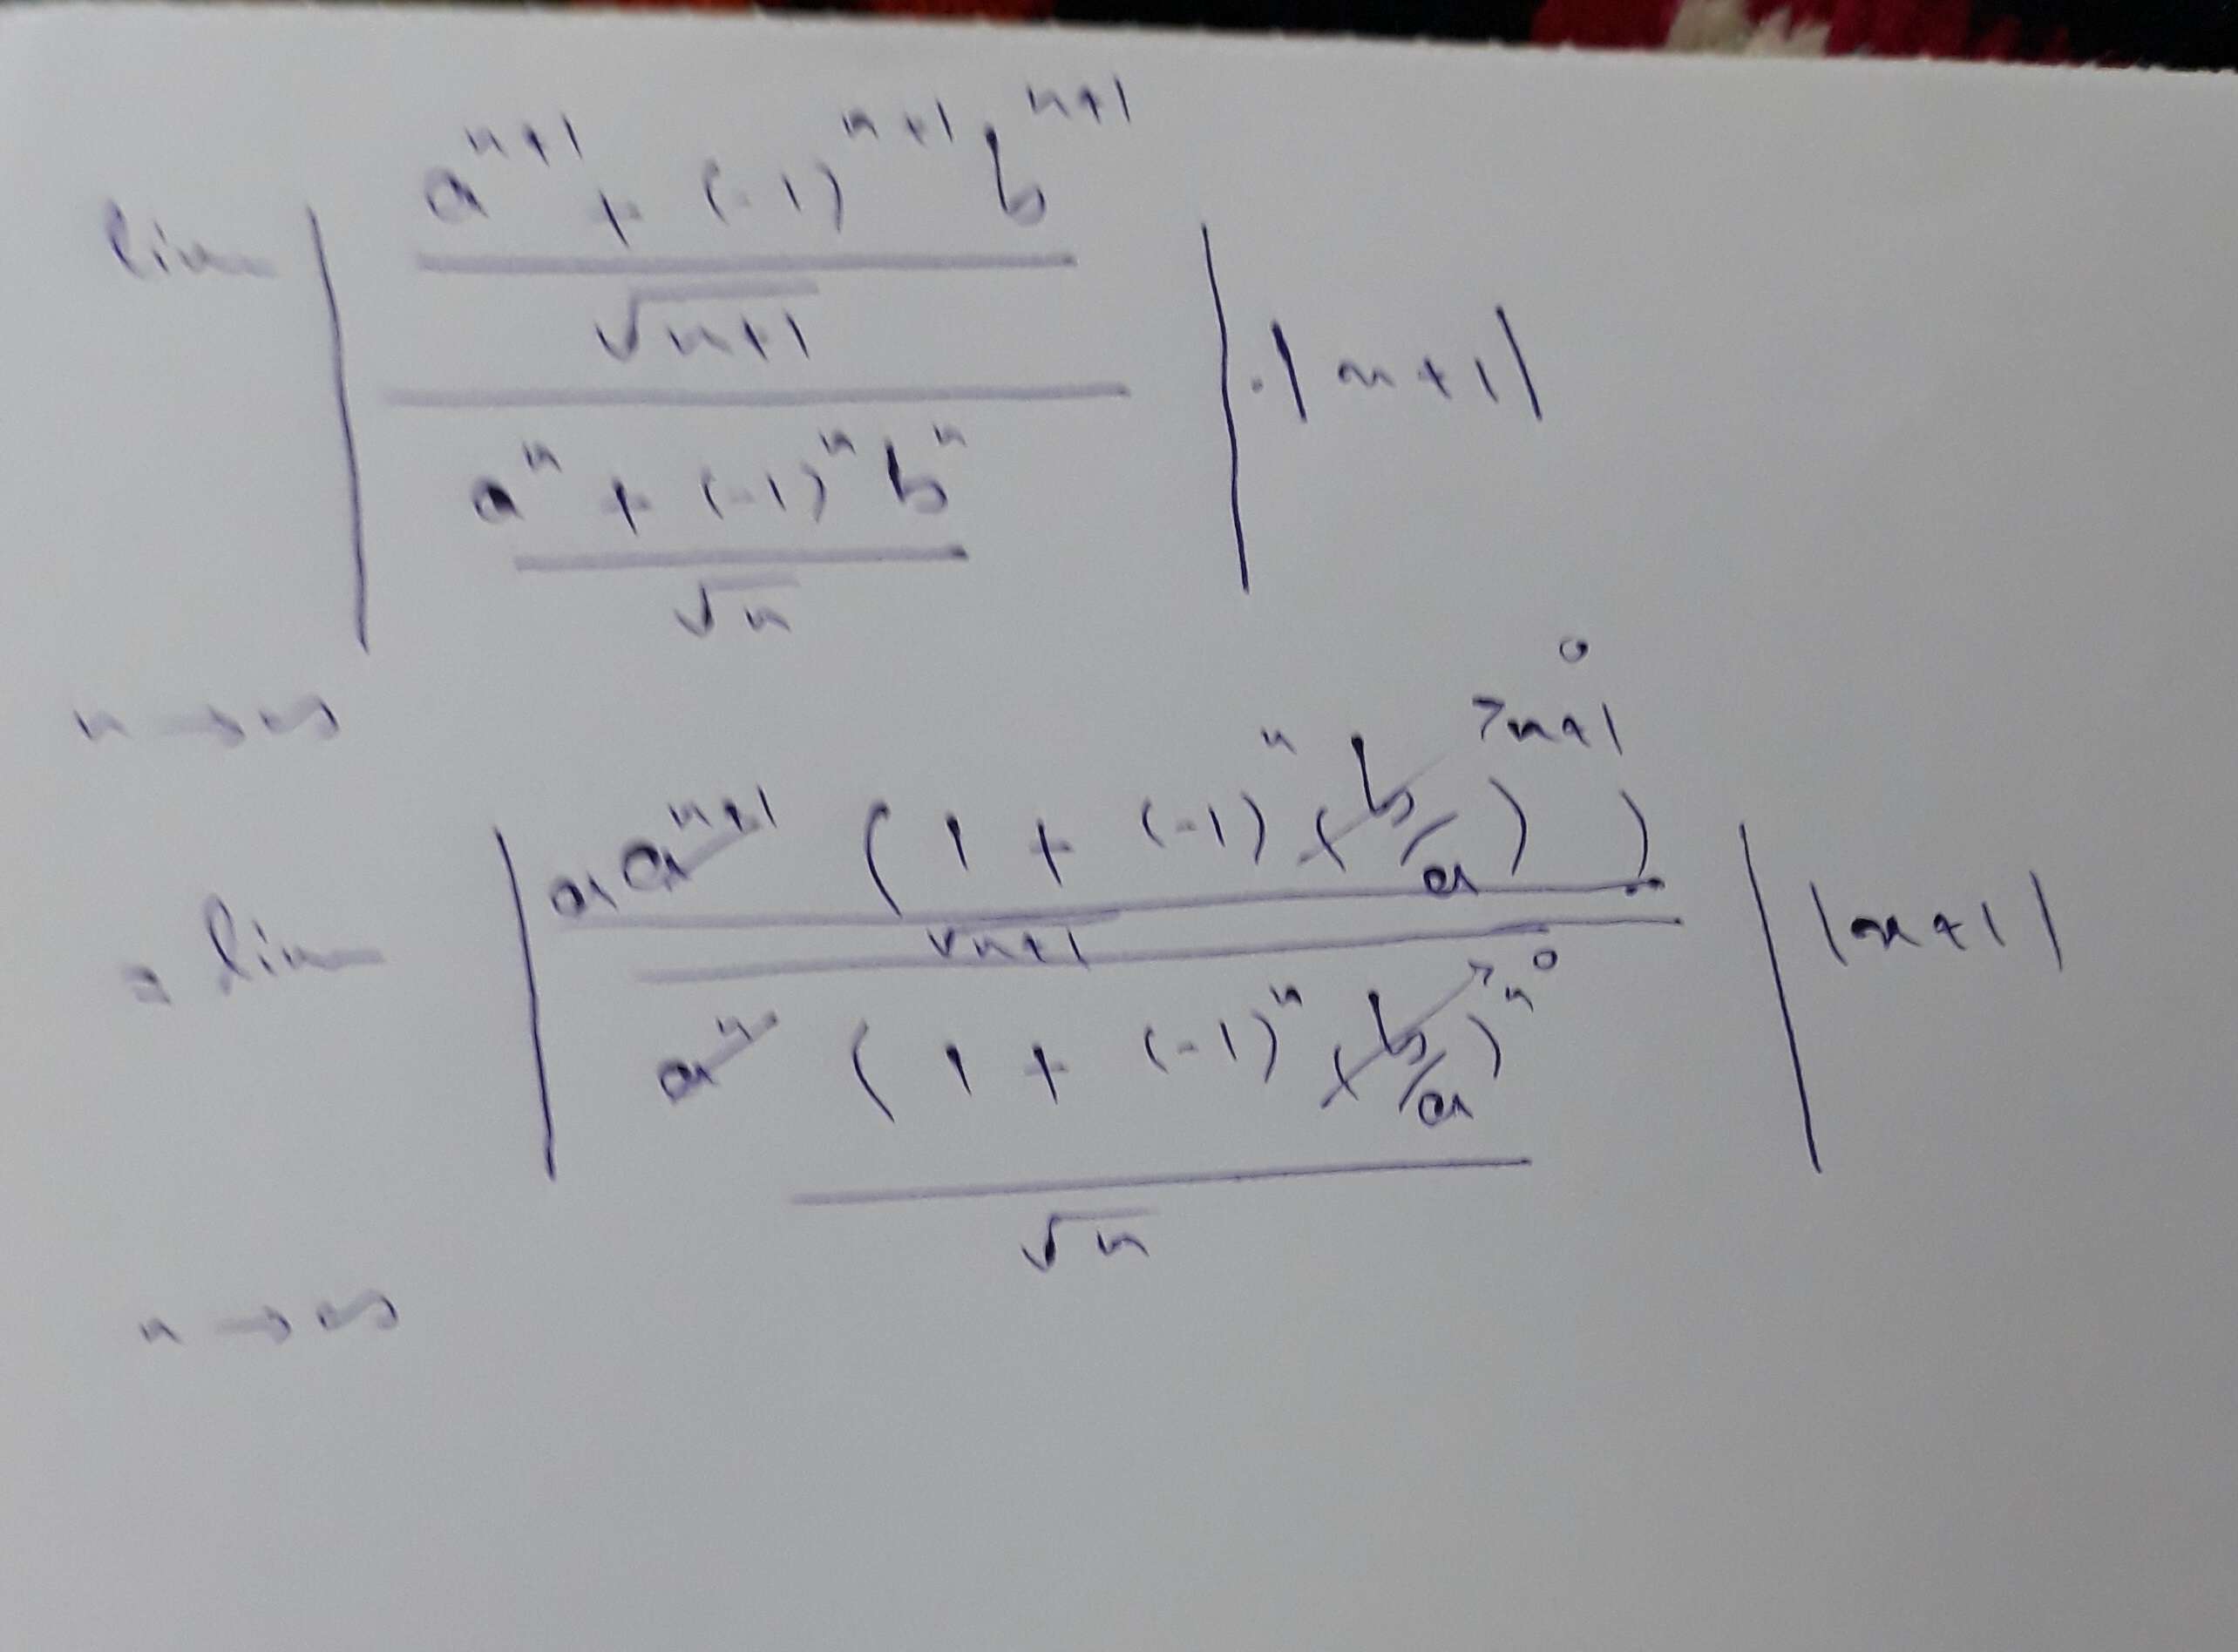 lim | ((a^{n+1} + (-1)^{n+1} b^{n+1}) / √(n+1)) / ((a^n + (-1)^n b^n) / √n) | · |x+1|
n → ∞
= lim | (a a^{n+1} (1 + (-1)^n (b/a)^{n+1 → 0}) / √(n+1)) / (a^n (1 + (-1)^n (b/a)^{n → 0}) / √n) | |x+1|
n → ∞